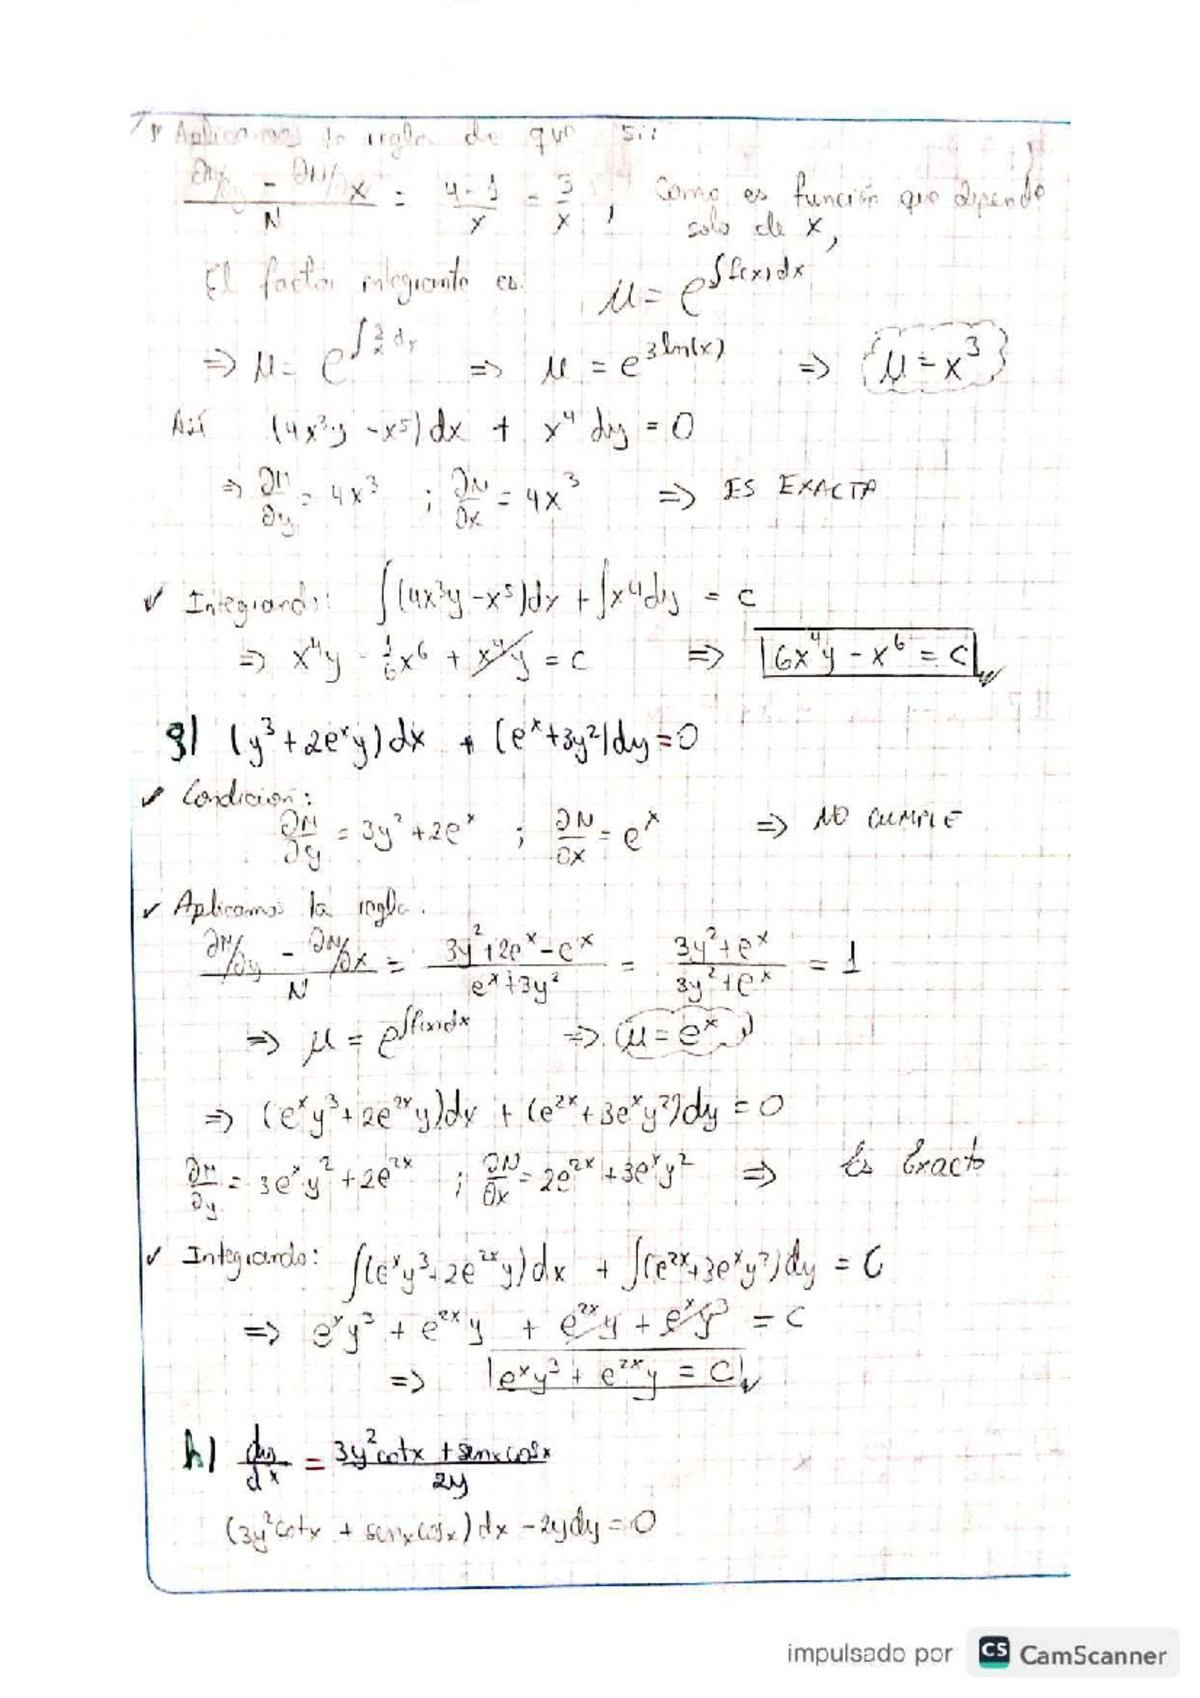 Aplicamos la regla de que si:
∂M/∂y - ∂N/∂x / N = 4-1/x = 3/x , Como es función que depende solo de x,
El factor integrante es: μ = e^∫f(x)dx
⇒ μ = e^∫3/x dx ⇒ μ = e^3ln(x) ⇒ μ = x³
Así (4x³y - x⁵)dx + x⁴ dy = 0
⇒ ∂M/∂y = 4x³ ; ∂N/∂x = 4x³ ⇒ ES EXACTA
✓ Integrando: ∫(4x³y - x⁵)dx + ∫x⁴dy = c
⇒ x⁴y - 1/6 x⁶ + x⁴y = c ⇒ 6x⁴y - x⁶ = c
g) (y³ + 2eˣy)dx + (eˣ + 3y²)dy = 0
✓ Condición:
∂M/∂y = 3y² + 2eˣ ; ∂N/∂x = eˣ ⇒ NO CUMPLE
✓ Aplicamos la regla.
∂M/∂y - ∂N/∂x / N = 3y² + 2eˣ - eˣ / eˣ + 3y² = 3y² + eˣ / 3y² + eˣ = 1
⇒ μ = e^∫f(x)dx ⇒ μ = eˣ
⇒ (eˣy³ + 2e²ˣy)dx + (e²ˣ + 3eˣy²)dy = 0
∂M/∂y = 3eˣy² + 2e²ˣ ; ∂N/∂x = 2e²ˣ + 3eˣy² ⇒ Es Exacto
✓ Integrando: ∫(eˣy³ + 2e²ˣy)dx + ∫(e²ˣ + 3eˣy²)dy = C
⇒ eˣy³ + e²ˣy + e²ˣy + eˣy³ = c
⇒ eˣy³ + e²ˣy = C
h) dy/dx = 3y²cotx + senxcosx / 2y
(3y²cotx + senxcosx)dx - 2ydy = 0
impulsado por CS CamScanner